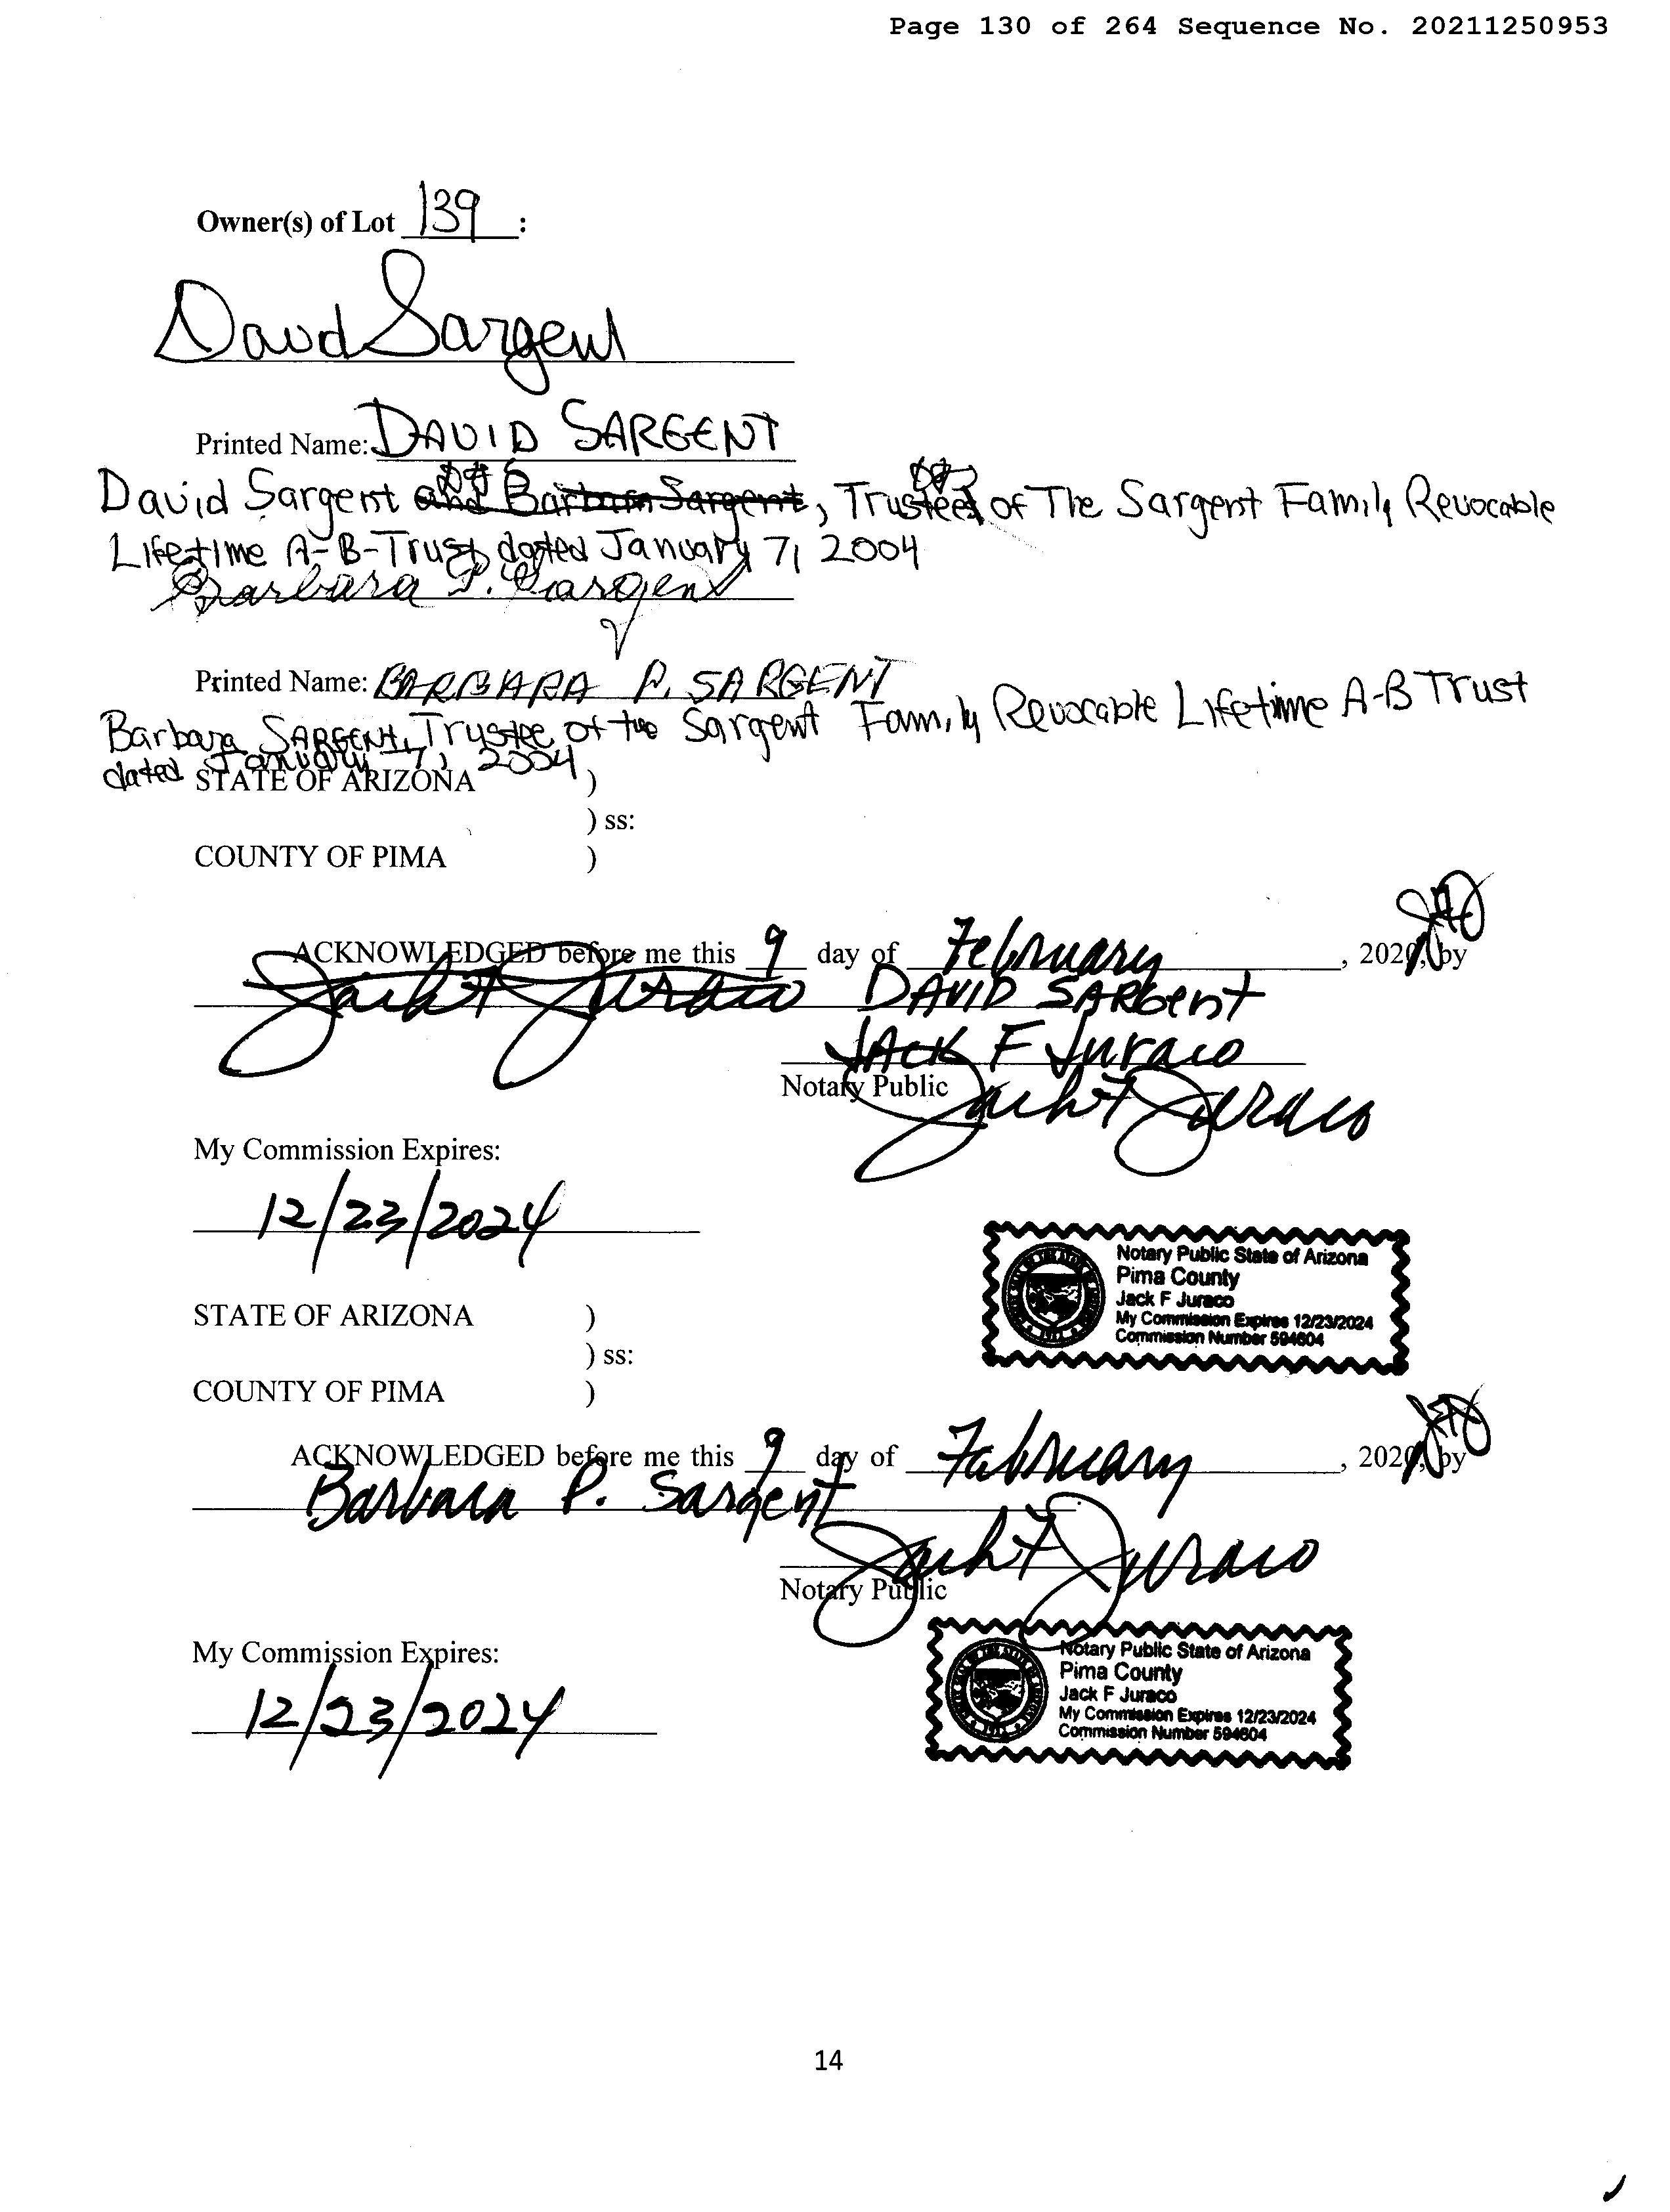 Page 130 of 264 Sequence No. 20211250953
Owner(s) of Lot 139 :
David Sargent
Printed Name: DAVID SARGENT
David Sargent and Barbara Sargent, Trustees of The Sargent Family Revocable
Lifetime A-B-Trust, dated January 7, 2004
Barbara P. Sargent
Printed Name: BARBARA P. SARGENT
Barbara SARGENT, Trustee of the Sargent Family Revocable Lifetime A-B Trust
dated January 7, 2004
STATE OF ARIZONA )
) ss:
COUNTY OF PIMA )
ACKNOWLEDGED before me this 9 day of February, 202 , by
Jack F Juraco DAVID SARGENT
JACK F Juraco
Notary Public Jack F Juraco
My Commission Expires:
12/23/2024
Notary Public State of Arizona
Pima County
Jack F Juraco
My Commission Expires 12/23/2024
Commission Number 594604
STATE OF ARIZONA )
) ss:
COUNTY OF PIMA )
ACKNOWLEDGED before me this 9 day of February, 202 , by
Barbara P. Sargent
Jack F Juraco
Notary Public
My Commission Expires:
12/23/2024
Notary Public State of Arizona
Pima County
Jack F Juraco
My Commission Expires 12/23/2024
Commission Number 594604
14